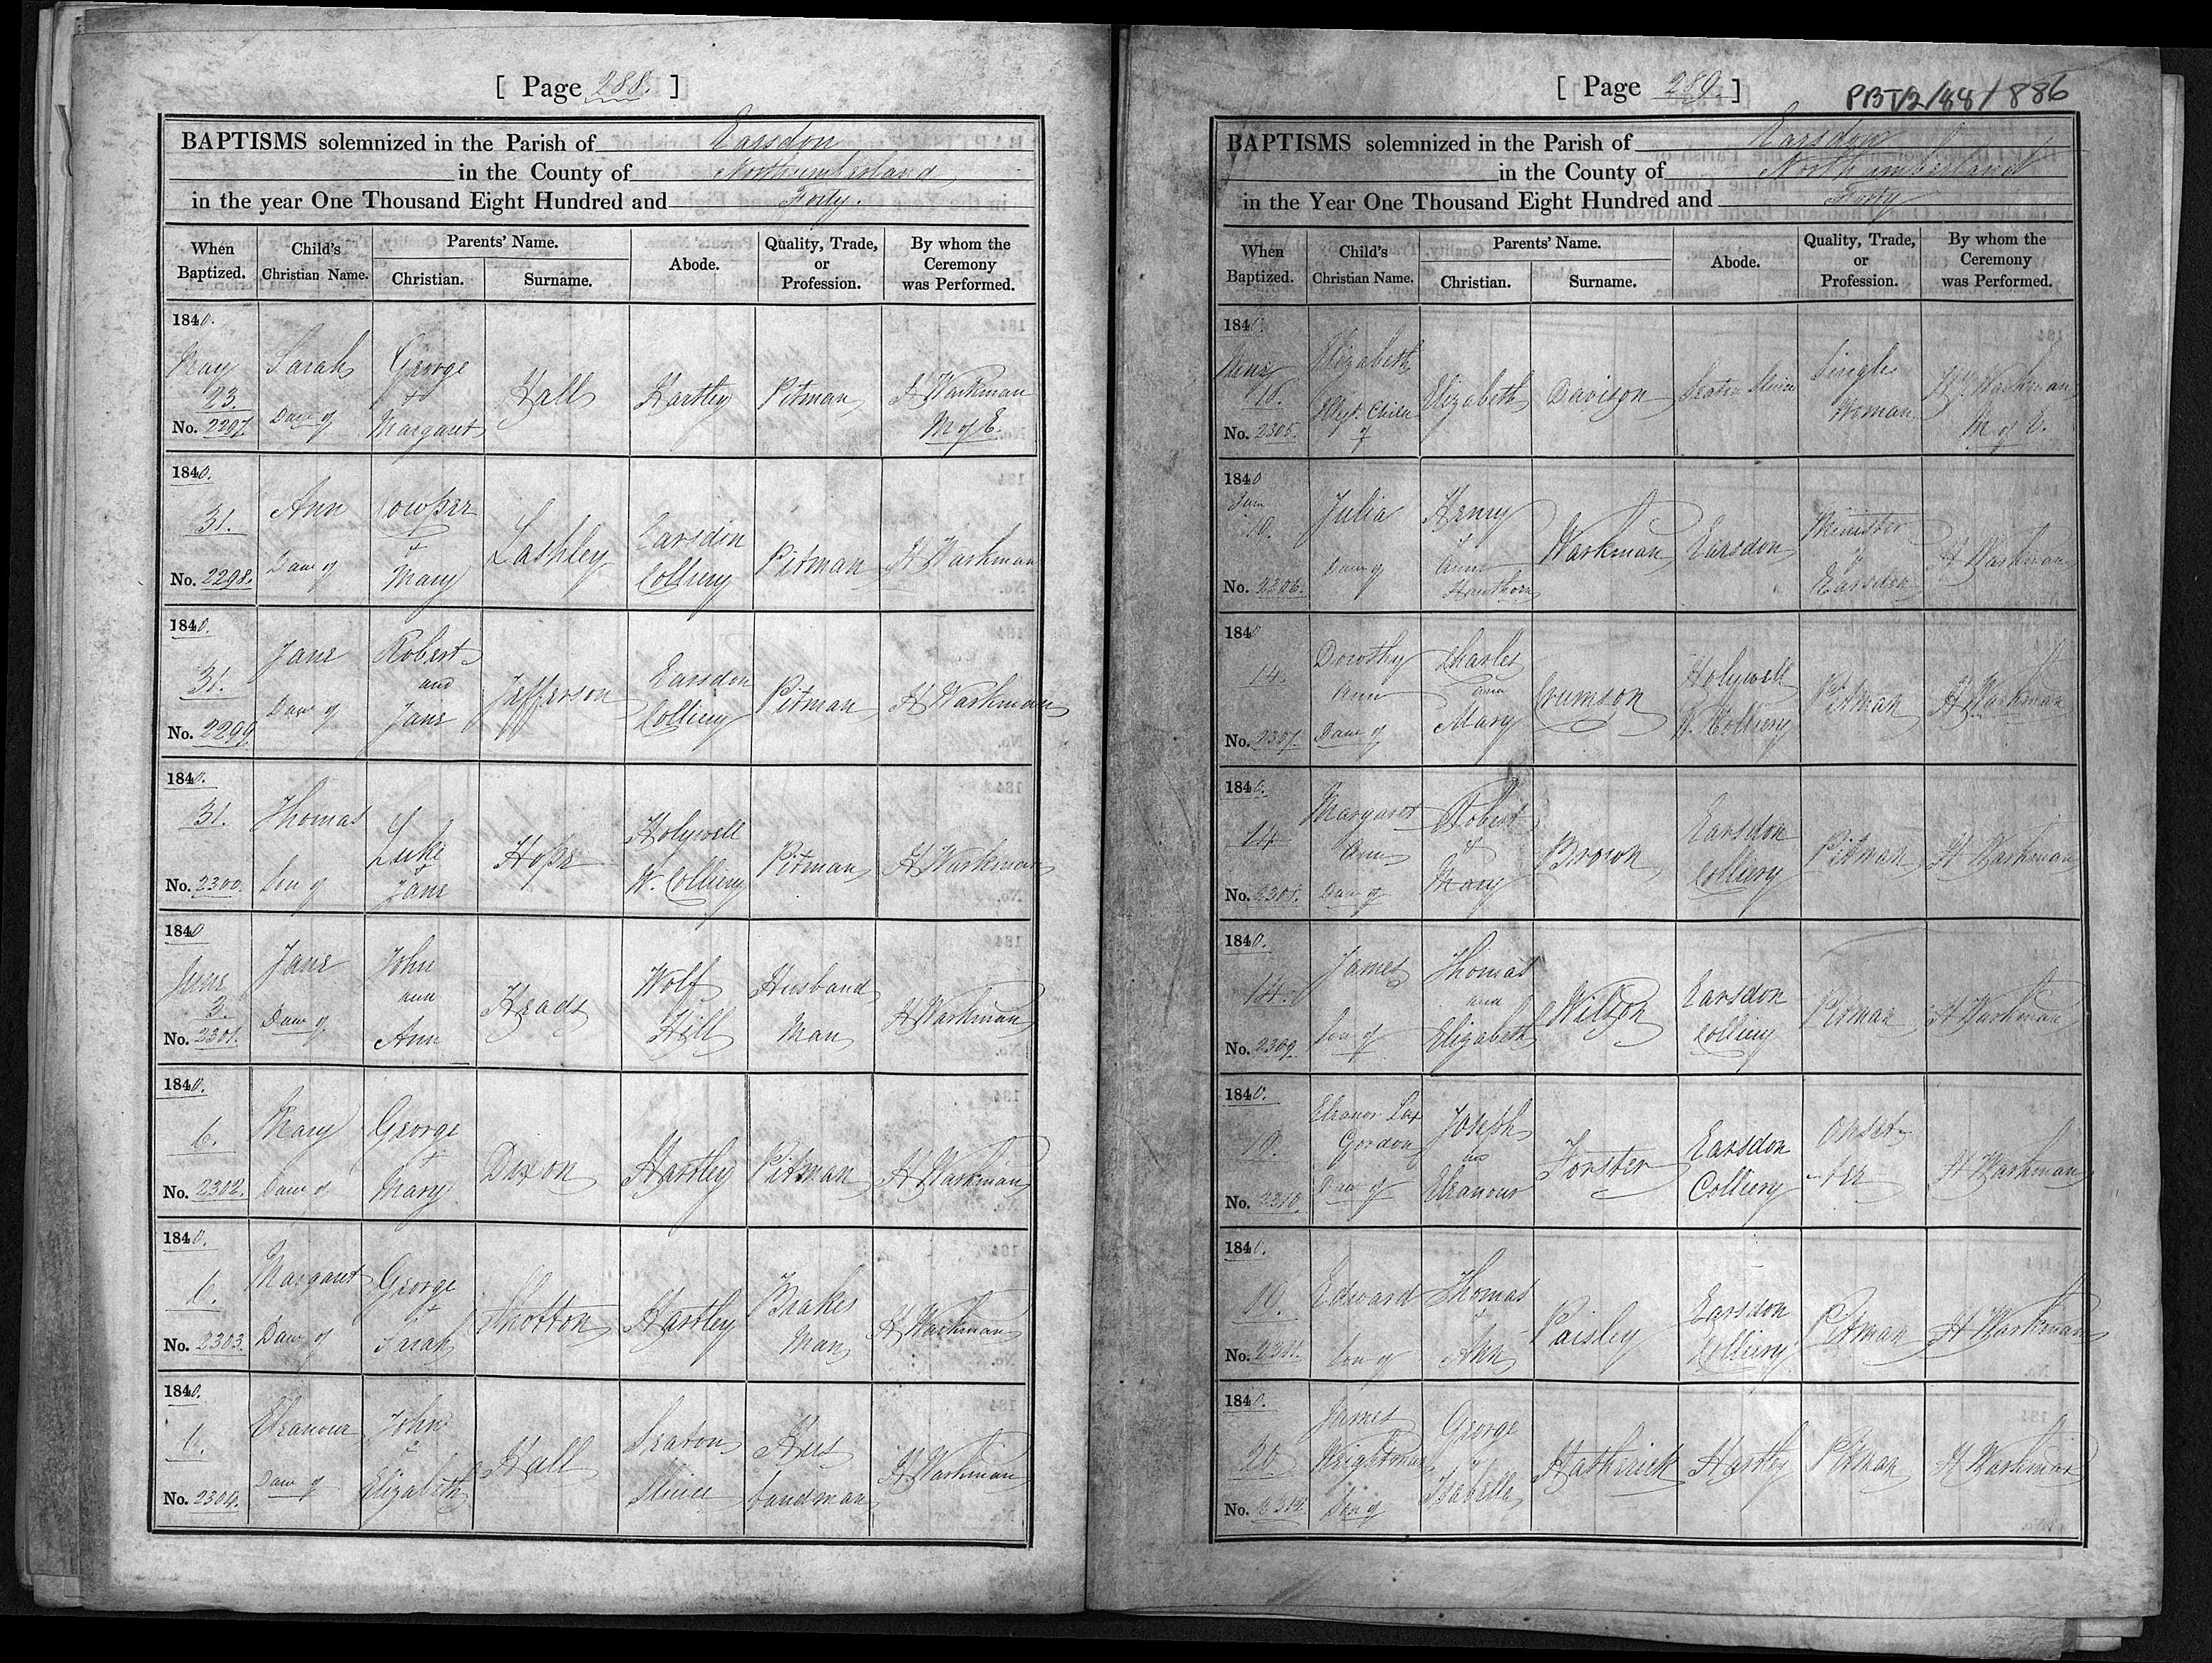 [ Page 288. ]
BAPTISMS solemnized in the Parish of Earsdon
in the County of Northumberland
in the year One Thousand Eight Hundred and Forty.
When Baptized. Child's Christian Name. Parents' Name. Christian. Surname. Abode. Quality, Trade, or Profession. By whom the Ceremony was Performed.
1840.
May 23. Sarah Daur of George & Margaret Hall Hartley Pitman H Warkman M of E.
No. 2297
1840.
31. Ann Daur of Cowper & Mary Lashley Earsdon Colliery Pitman H Warkman
No. 2298.
1840.
31. Jane Daur of Robert and Jane Jefferson Earsdon Colliery Pitman H Warkman
No. 2299
1840.
31. Thomas Son of Luke & Jane Hope Holywell W. Colliery Pitman H Warkman
No. 2300.
1840
June 3. Jane Daur of John and Ann Heads Wolf Hill Husband Man H Warkman
No. 2301.
1840.
6. Mary Daur of George & Mary Dixon Hartley Pitman H Warkman
No. 2302.
1840.
6. Margaret Daur of George & Sarah Shotton Hartley Brakes Man H Warkman
No. 2303.
1840.
6. Eleanour Daur of John & Elizabeth Hall Seaton Sluice Hus bandman H Warkman
No. 2304.
[ Page 289. ]
PBT/2/88/886
BAPTISMS solemnized in the Parish of Earsdon
in the County of Northumberland
in the Year One Thousand Eight Hundred and Forty
When Baptized. Child's Christian Name. Parents' Name. Christian. Surname. Abode. Quality, Trade, or Profession. By whom the Ceremony was Performed.
1840.
June 10. Elizabeth Illegt. Child of Elizabeth Davison Seaton Sluice Single Woman H Warkman M of E.
No. 2305.
1840
June 10. Julia Daur of Henry & Ann Hawthorn Warkman Earsdon Minister of Earsdon H Warkman
No. 2306.
1840
14. Dorothy Ann Daur of Charles and Mary Crumson Holywell W. Colliery Pitman H Warkman
No. 2307.
1840.
14 Margaret Ann Daur of Robert & Mary Brown Earsdon Colliery Pitman H Warkman
No. 2308.
1840.
14. James Son of Thomas and Elizabeth Wilson Earsdon Colliery Pitman H Warkman
No. 2309
1840.
19. Eleanor Lax Gordon Daur of Joseph and Eleanour Forster Earsdon Colliery Onset- -ter H Warkman
No. 2310.
1840.
19. Edward Son of Thomas & Ann Paisley Earsdon Colliery Pitman H Warkman
No. 2311.
1840.
20 James Wrightman Son of George & Isabella Hathrick Hartley Pitman H Warkman
No. 2312.